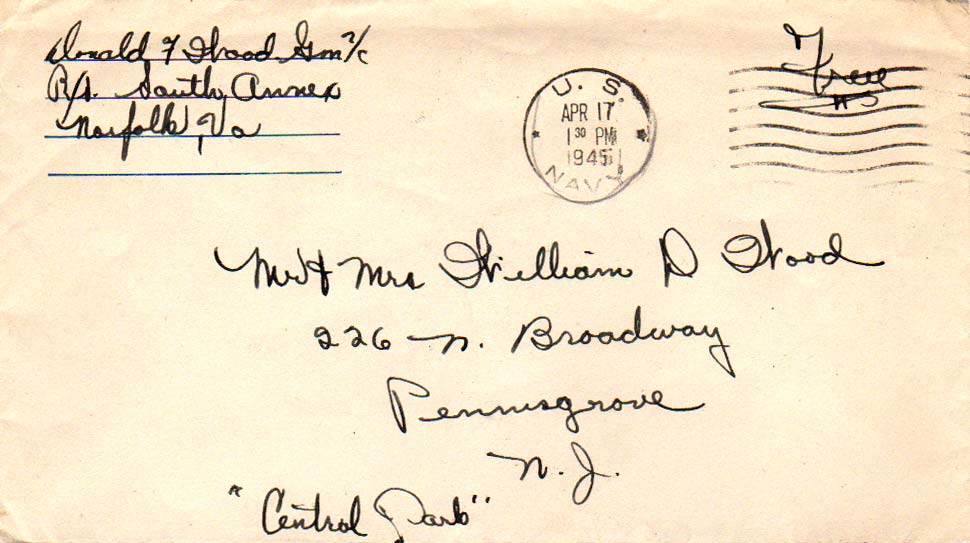 Donald F Wood Gm 2/c
R/S. South Annex
Norfolk, Va
U. S.
APR 17
1 30 PM
1945
NAVY
Free
Mr & Mrs William D Wood
226 N. Broadway
Pennsgrove
N. J.
"Central Park"